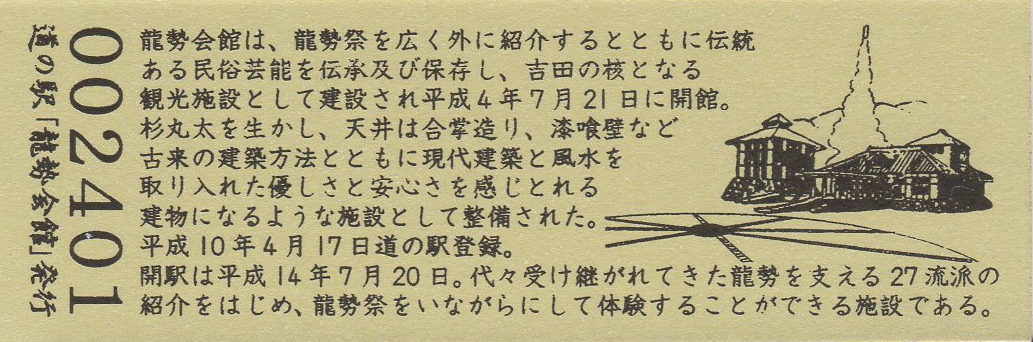 道の駅「龍勢会館」発行
002401
龍勢会館は、龍勢祭を広く外に紹介するとともに伝統
ある民俗芸能を伝承及び保存し、吉田の核となる
観光施設として建設され平成4年7月21日に開館。
杉丸太を生かし、天井は合掌造り、漆喰壁など
古来の建築方法とともに現代建築と風水を
取り入れた優しさと安心さを感じとれる
建物になるような施設として整備された。
平成10年4月17日道の駅登録。
開駅は平成14年7月20日。代々受け継がれてきた龍勢を支える27流派の
紹介をはじめ、龍勢祭をいながらにして体験することができる施設である。